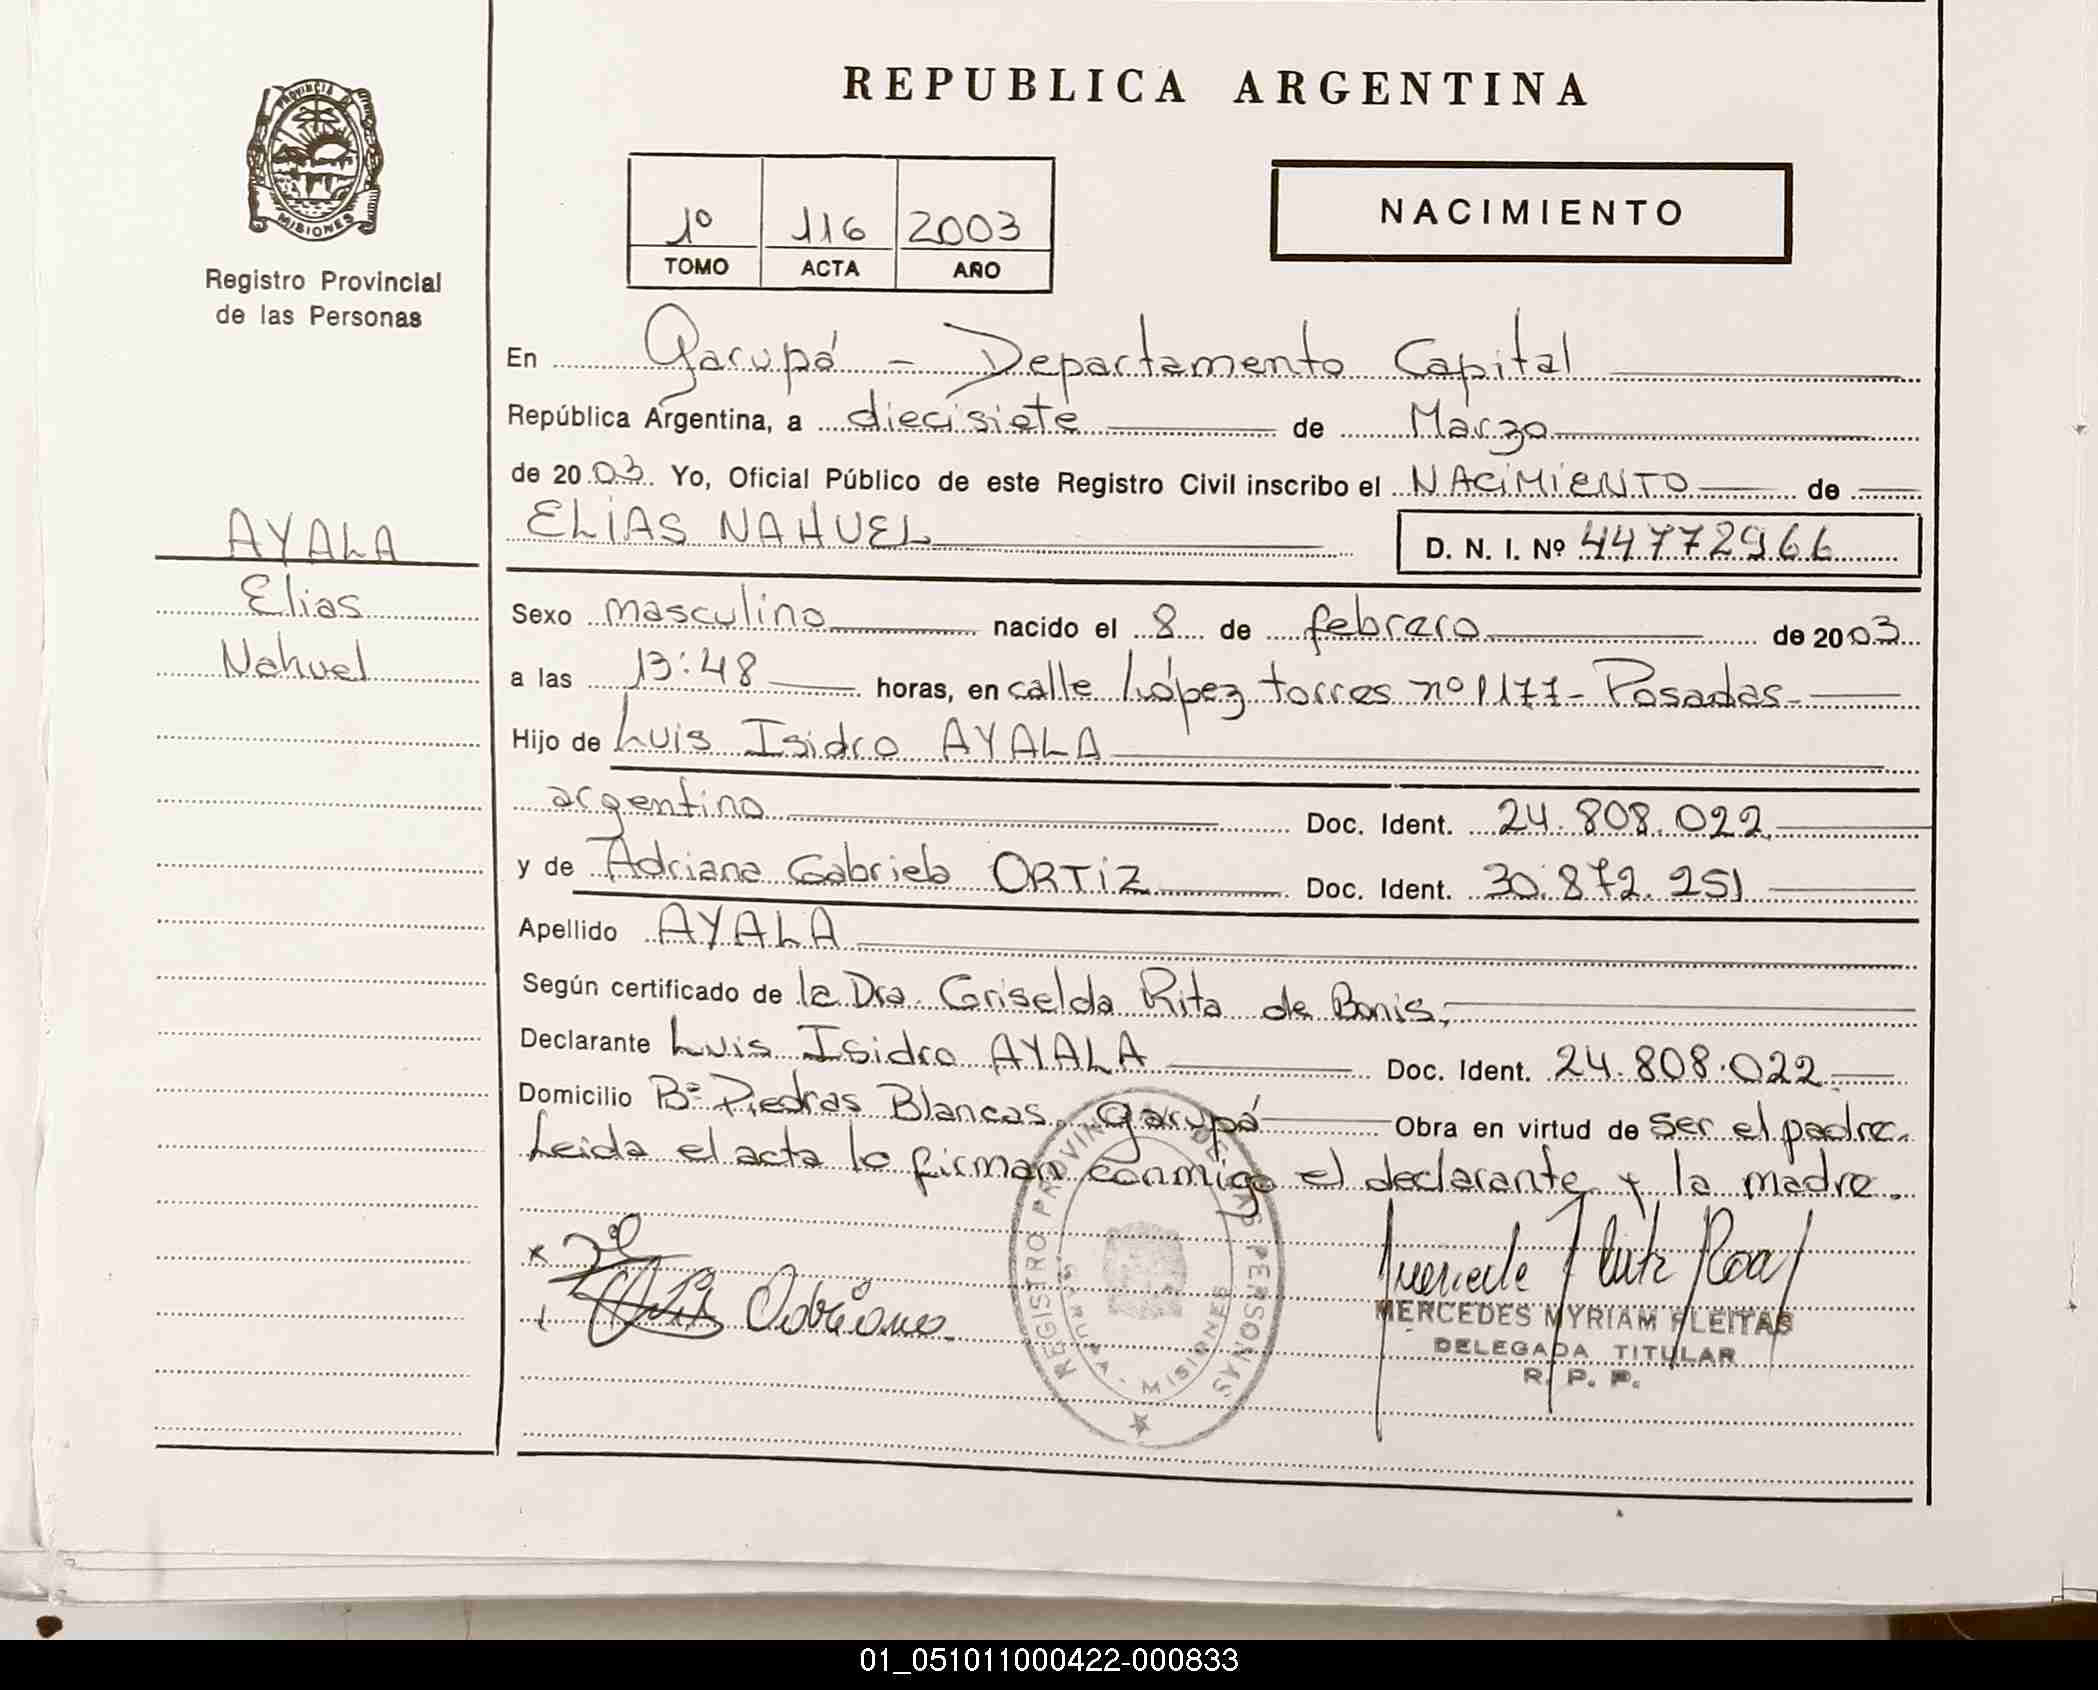 REPUBLICA ARGENTINA
PROVINCIA DE
MISIONES
Registro Provincial
de las Personas
1º 116 2003
TOMO ACTA AÑO
NACIMIENTO
En Garupá - Departamento Capital
República Argentina, a diecisiete de Marzo
de 2003. Yo, Oficial Público de este Registro Civil inscribo el NACIMIENTO de
AYALA
Elias
Nahuel
ELIAS NAHUEL
D. N. I. Nº 44772966
Sexo masculino nacido el 8 de febrero de 2003
a las 13:48 horas, en calle López torres nº 1177 - Posadas -
Hijo de Luis Isidro AYALA
argentino Doc. Ident. 24.808.022
y de Adriana Gabriela ORTIZ Doc. Ident. 30.872.251
Apellido AYALA
Según certificado de la Dra. Griselda Rita de Bonis,
Declarante Luis Isidro AYALA Doc. Ident. 24.808.022
Domicilio Bº Piedras Blancas, Garupá Obra en virtud de ser el padre.
Leida el acta lo firman conmigo el declarante y la madre.
REGISTRO PROVINCIAL DE LAS PERSONAS
GARUPA - MISIONES
MERCEDES MYRIAM FLEITAS
DELEGADA TITULAR
R. P. P.
01_051011000422-000833